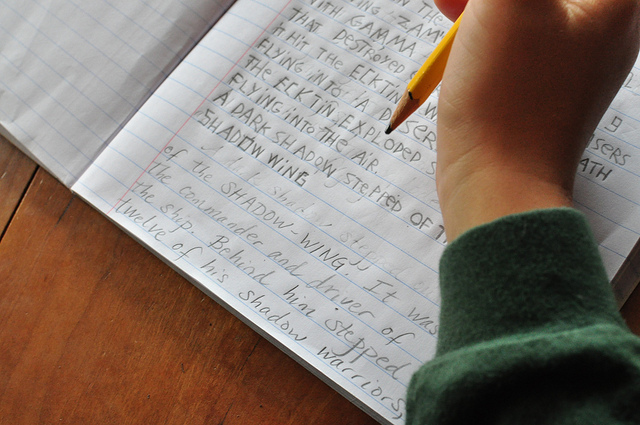 THE
ING ZAM
WITH GAMMA
THAT DESTROYED
IT HIT THE ECKTIN
FLYING INTO A DESER
THE ECKTIN EXPLODED S
FLYING INTO THE AIR.
A DARK SHADOW STEPPED OF TH
SHADOW WING
of the SHADOW-WING. It was
the commander and driver of
the ship. Behind him stepped
twelve of his shadow warriors,